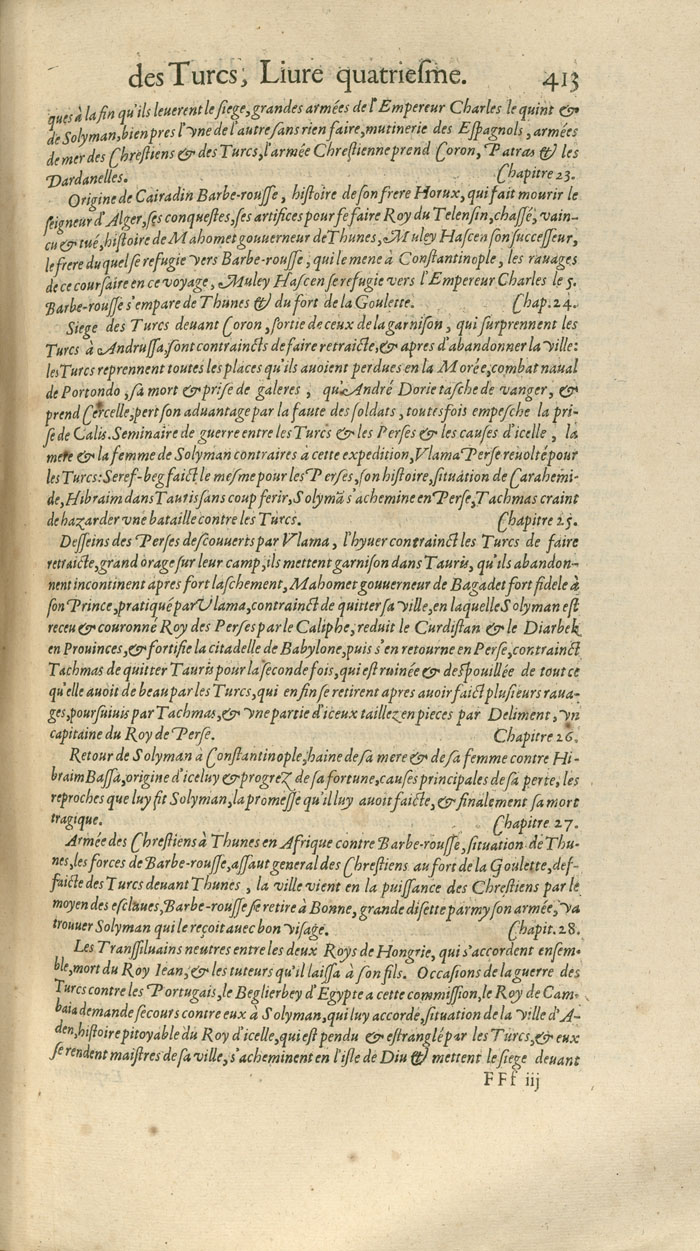 des Turcs, Liure quatriesme. 413
ques à la fin qu'ils leuerent le siege, grandes armées de l'Empereur Charles le quint &
de Solyman, bien pres l'vne de l'autre sans rien faire, mutinerie des Espagnols, armées
de mer des Chrestiens & des Turcs, l'armée Chrestienne prend Coron, Patras & les
Dardanelles. Chapitre 23.
Origine de Cairadin Barbe-rousse, histoire de son frere Horux, qui fait mourir le
seigneur d'Alger, ses conquestes, ses artifices pour se faire Roy du Telensin, chassé, vain-
cu & tué, histoire de Mahomet gouuerneur de Thunes, Muley Hascen son successeur,
le frere duquel se refugie vers Barbe-rousse, qui le mene à Constantinople, les rauages
de ce coursaire en ce voyage, Muley Hascen se refugie vers l'Empereur Charles le 5.
Barbe-rousse s'empare de Thunes & du fort de la Goulette. Chap. 24.
Siege des Turcs deuant Coron, sortie de ceux de la garnison, qui surprennent les
Turcs à Andrussa, sont contraincts de faire retraicte, & apres d'abandonner la ville:
les Turcs reprennent toutes les places qu'ils auoient perdues en la Morée, combat naual
de Portondo, sa mort & prise de galeres, qu'André Dorie tasche de vanger, &
prend Cercelle, pert son aduantage par la faute des soldats, toutesfois empesche la pri-
se de Calis. Seminaire de guerre entre les Turcs & les Perses & les causes d'icelle, la
mere & la femme de Solyman contraires à cette expedition, Vlama Perse reuolté pour
les Turcs: Seref-beg faict le mesme pour les Perses, son histoire, situation de Carahemi-
de, Hibraim dans Tauris sans coup ferir, Solymã s'achemine en Perse, Tachmas craint
de hazarder vne bataille contre les Turcs. Chapitre 25.
Desseins des Perses descouuerts par Vlama, l'hyuer contrainct les Turcs de faire
retraicte, grand orage sur leur camp, ils mettent garnison dans Tauris, qu'ils abandon-
nent incontinent apres fort laschement, Mahomet gouuerneur de Bagadet fort fidele à
son Prince, pratiqué par Vlama, contrainct de quitter sa ville, en laquelle Solyman est
receu & couronné Roy des Perses par le Caliphe, reduit le Curdistan & le Diarbek
en Prouinces, & fortifie la citadelle de Babylone, puis s'en retourne en Perse, contrainct
Tachmas de quitter Tauris pour la seconde fois, qui est ruinée & despouillée de tout ce
qu'elle auoit de beau par les Turcs, qui en fin se retirent apres auoir faict plusieurs raua-
ges, poursuiuis par Tachmas, & vne partie d'iceux taillez en pieces par Deliment, vn
capitaine du Roy de Perse. Chapitre 26.
Retour de Solyman à Constantinople, haine de sa mere & de sa femme contre Hi-
braim Bassa, origine d'iceluy & progrez de sa fortune, causes principales de sa perte, les
reproches que luy fit Solyman, la promesse qu'il luy auoit faicte, & finalement sa mort
tragique. Chapitre 27.
Armée des Chrestiens à Thunes en Afrique contre Barbe-rousse, situation de Thu-
nes, les forces de Barbe-rousse, assaut general des Chrestiens au fort de la Goulette, def-
faicte des Turcs deuant Thunes, la ville vient en la puissance des Chrestiens par le
moyen des esclaues, Barbe-rousse se retire à Bonne, grande disette parmy son armée, va
trouuer Solyman qui le reçoit auec bon visage. Chapit. 28.
Les Transsiluains neutres entre les deux Roys de Hongrie, qui s'accordent ensem-
ble, mort du Roy Iean, & les tuteurs qu'il laissa à son fils. Occasions de la guerre des
Turcs contre les Portugais, le Beglierbey d'Egypte a cette commission, le Roy de Cam-
baia demande secours contre eux à Solyman, qui luy accorde, situation de la ville d'A-
den, histoire pitoyable du Roy d'icelle, qui est pendu & estranglé par les Turcs, & eux
se rendent maistres de sa ville, s'acheminent en l'isle de Diu & mettent le siege deuant
FFf iij